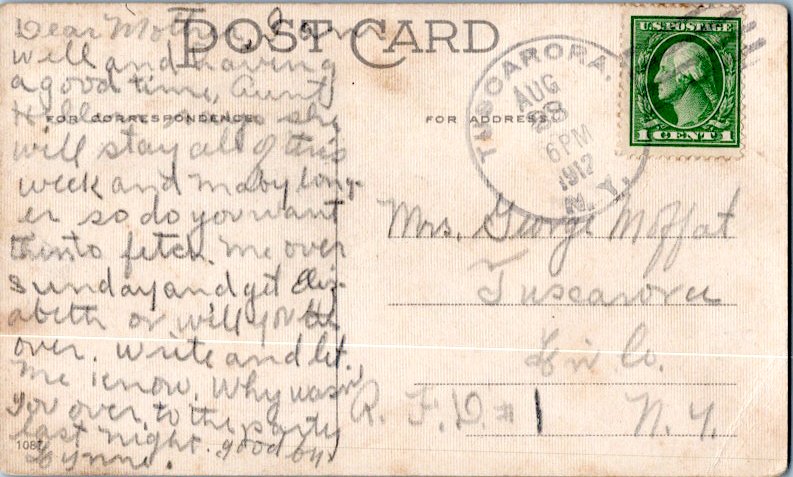 POST CARD
FOR CORRESPONDENCE
FOR ADDRESS
Dear Mother, I am
well and having
a good time, Aunt
says she
will stay all of this
week and maby long-
er so do you want
them to fetch me over
Sunday and get Eliz-
abeth or will you
over. Write and let
me know. Why wasn't
you over to the party
last night. good by
Lynne.
1087
TUSCARORA,
AUG
28
6 PM
1912
N.Y.
U.S. POSTAGE
1 CENT 1
Mrs. George Moffat
Tuscarora
Liv Co.
R. F. D. # 1 N. Y.